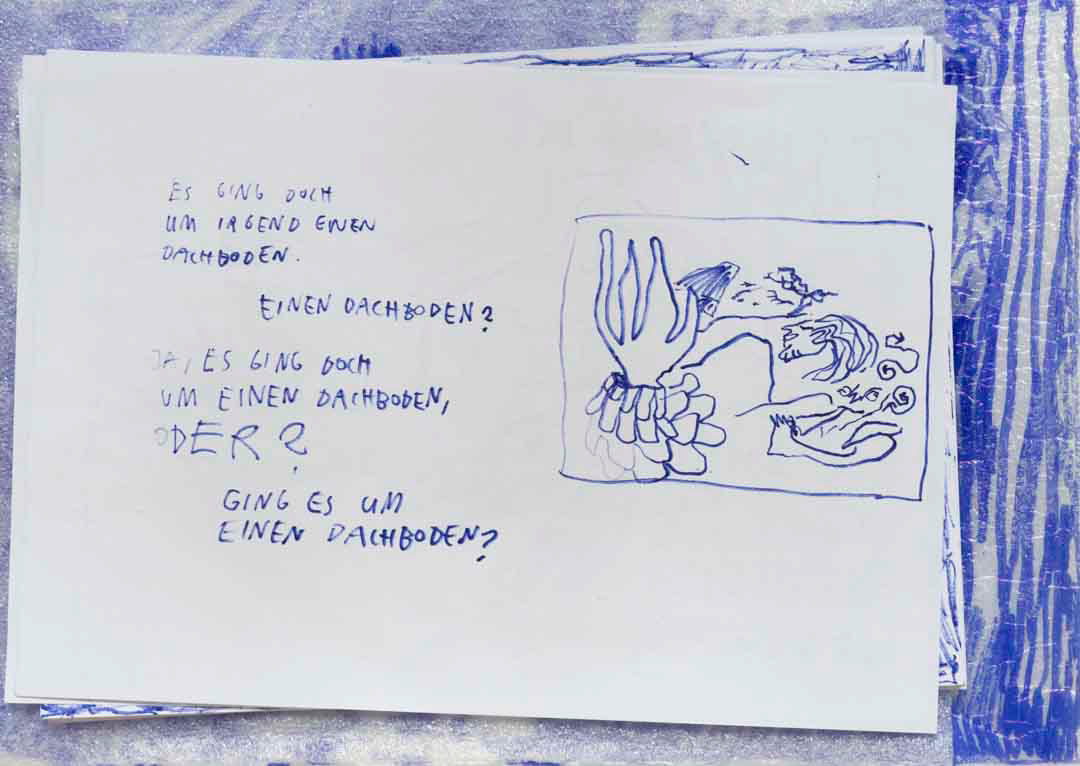 ES GING DOCH
UM IRGEND EINEN
DACHBODEN.
EINEN DACHBODEN?
JA, ES GING DOCH
UM EINEN DACHBODEN,
ODER?
GING ES UM
EINEN DACHBODEN?